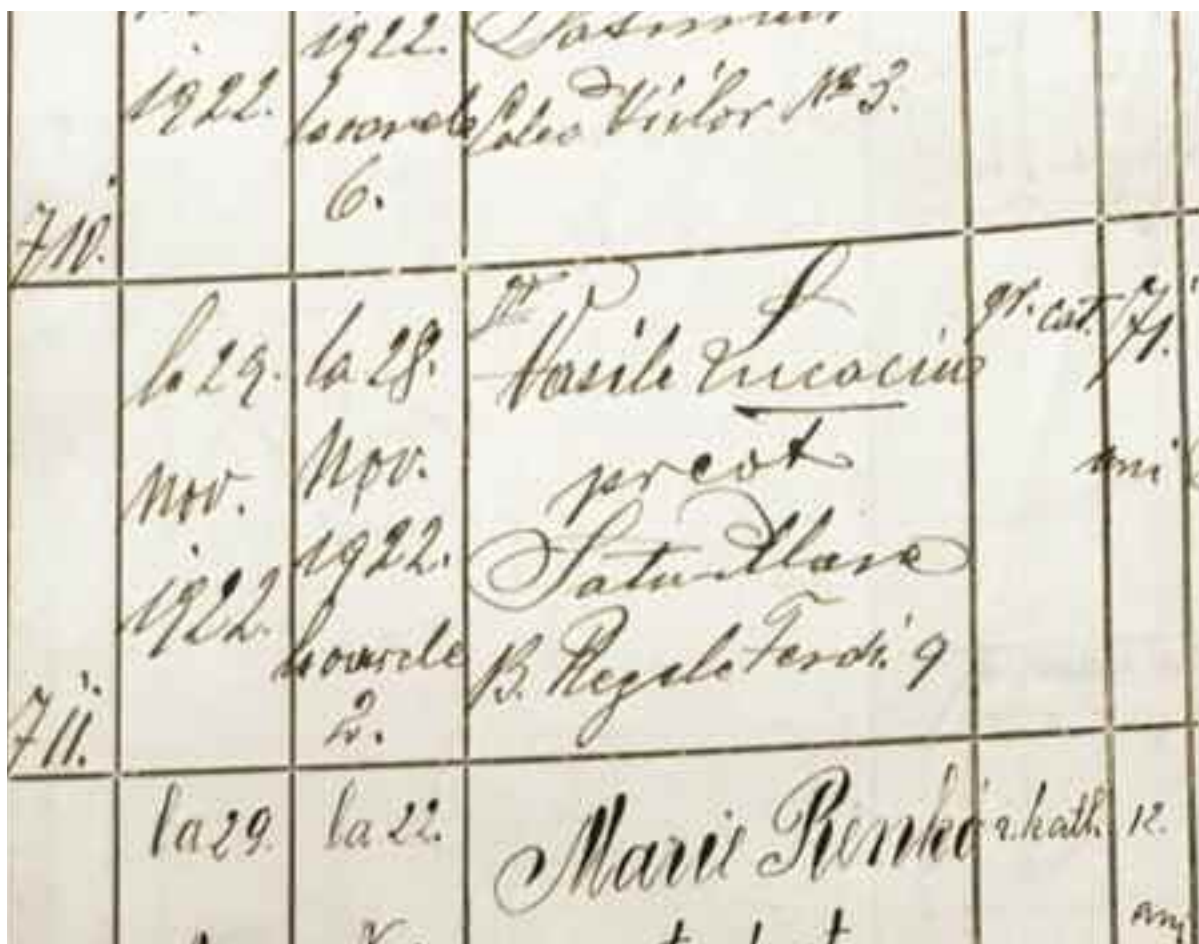 1922.
1922.
la oarele
6.
Calea Viilor № 3.
710.
la 29.
Nov.
1922.
la 28.
Nov.
1922.
la oarele
2.
Dr
Vasile Lucaciu
preot
Satu-Mare
B. Regele Ferdi. 9
gr. cat.
71.
ani
711.
la 29.
la 22.
Marie Renkó
r. kath.
12.
ani